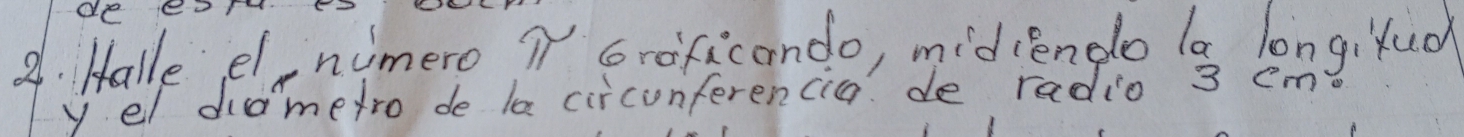 de esta es
2. Halle el número π Graficando, midiendo la longitud
y el diámetro de la circunferencia de radio 3 cm.